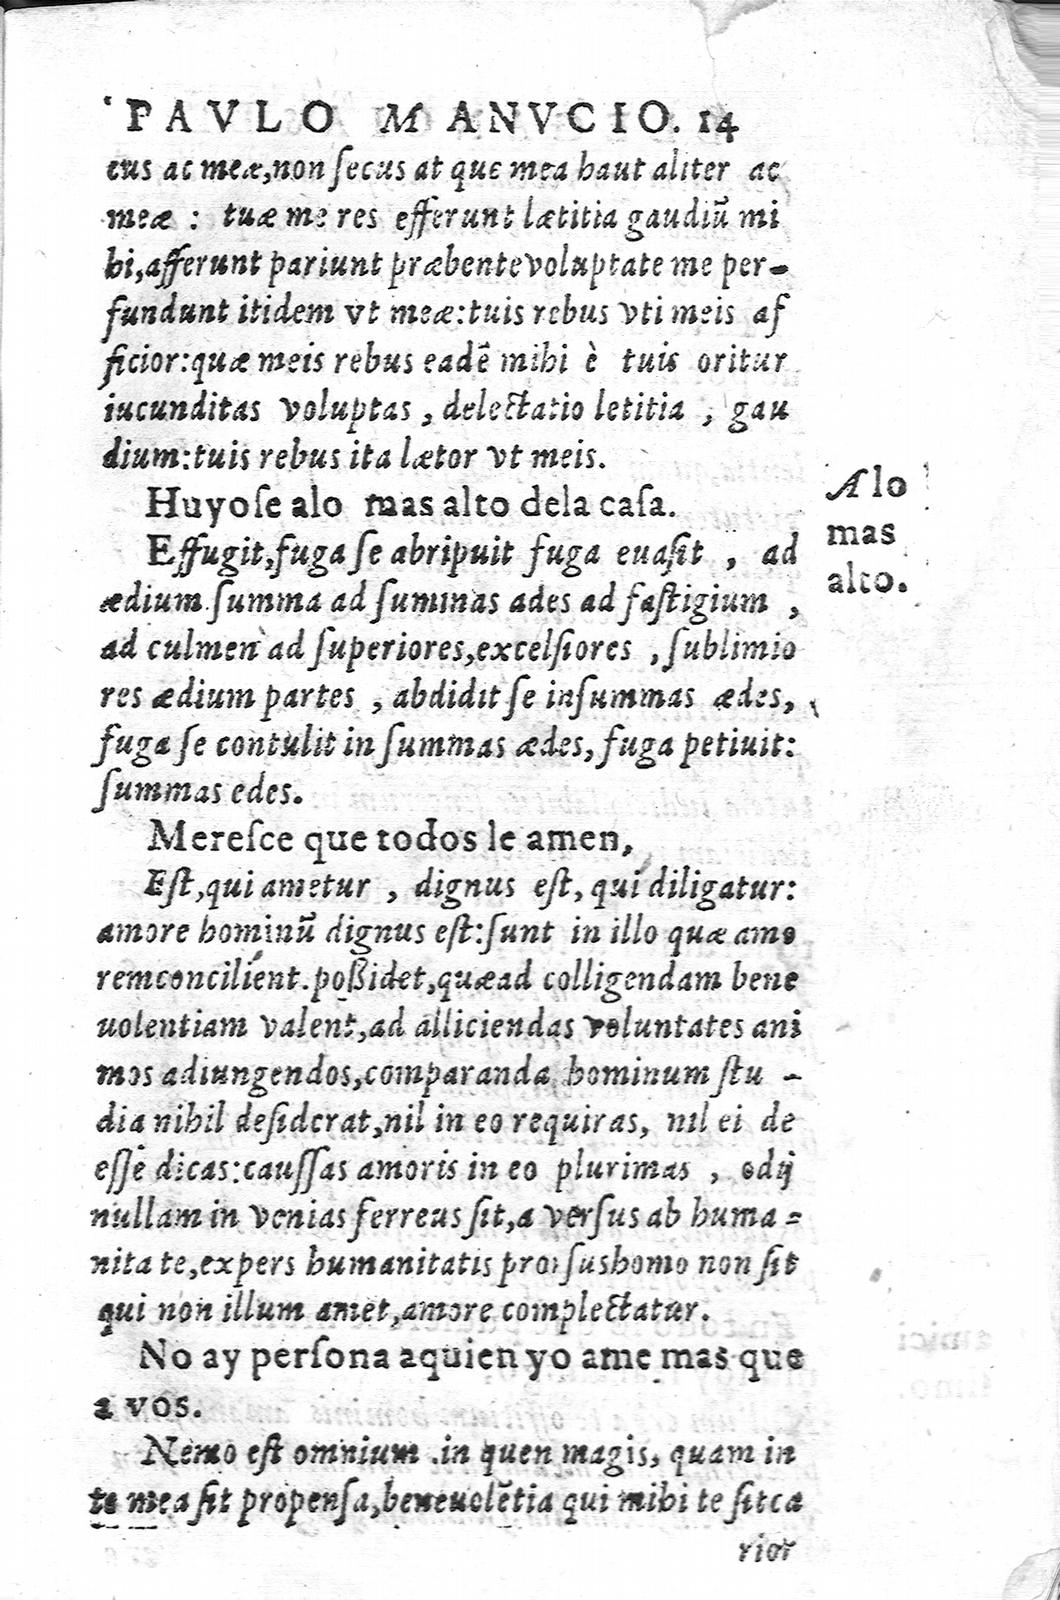 PAVLO MANVCIO. 14
cus ac meæ, non ſecus at que mea haut aliter ac
meæ : tuæ me res efferunt lætitia gaudiũ mi
hi, afferunt pariunt præbente voluptate me per-
fundunt itidem vt meæ: tuis rebus vti meis af
ficior: quæ meis rebus eadẽ mihi è tuis oritur
iucunditas voluptas , delectatio letitia , gau
dium: tuis rebus ita lætor vt meis.
Huyoſe alo mas alto dela caſa.
A lo
mas
alto.
Effugit, fuga ſe abripuit fuga euaſit , ad
ædium ſumma ad ſummas ades ad faſtigium ,
ad culmen ad ſuperiores, excelſiores , ſublimio
res ædium partes , abdidit ſe inſummas ædes,
fuga ſe contulit in ſummas ædes, fuga petiuit:
ſummas edes.
Mereſce que todos le amen,
Eſt, qui ametur , dignus eſt, qui diligatur:
amore hominũ dignus eſt: ſunt in illo quæ amo
remconcilient. poßidet, quæad colligendam bene
uolentiam valent, ad alliciendas voluntates ani
mos adiungendos, comparanda hominum ſtu -
dia nihil deſiderat, nil in eo requiras, nil ei de
eſſe dicas: cauſſas amoris in eo plurimas , odij
nullam in venias ferreus ſit, a verſus ab huma=
nita te, expers humanitatis prorſushomo non ſit
qui non illum amet, amore complectatur.
No ay perſona aquien yo ame mas que
a vos.
Nemo eſt omnium .in quen magis, quam in
te mea ſit propenſa, beneuolẽtia qui mihi te ſitca
rior